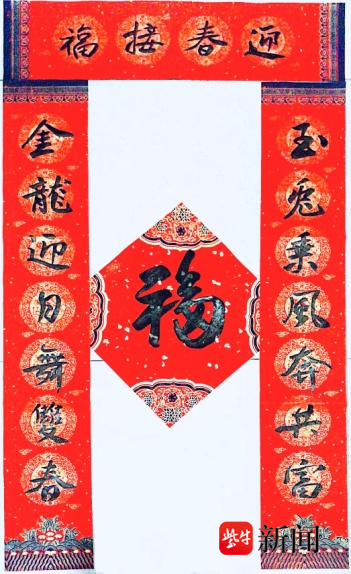 迎春接福
玉兔乘風奔共富
金龍迎月舞雙春
福
紫牛新闻